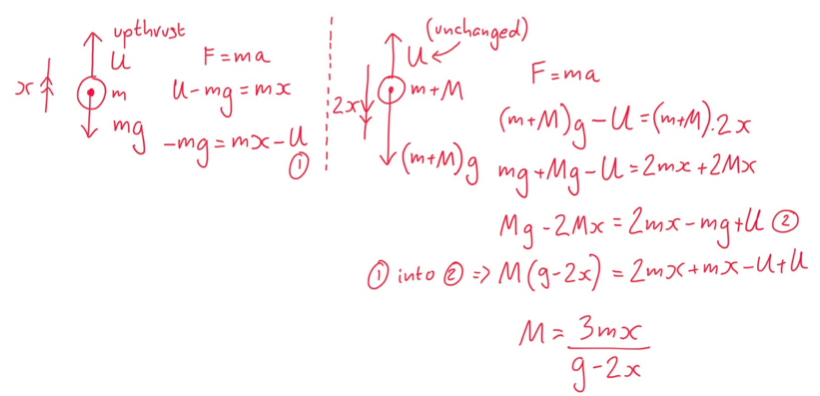 upthrust
U
x
m
mg
F = ma
U - mg = mx
-mg = mx - U
①
(unchanged)
U
2x
m+M
(m+M)g
F = ma
(m+M)g - U = (m+M).2x
mg + Mg - U = 2mx + 2Mx
Mg - 2Mx = 2mx - mg + U ②
① into ② => M(g-2x) = 2mx + mx - U + U
M = 3mx
g-2x